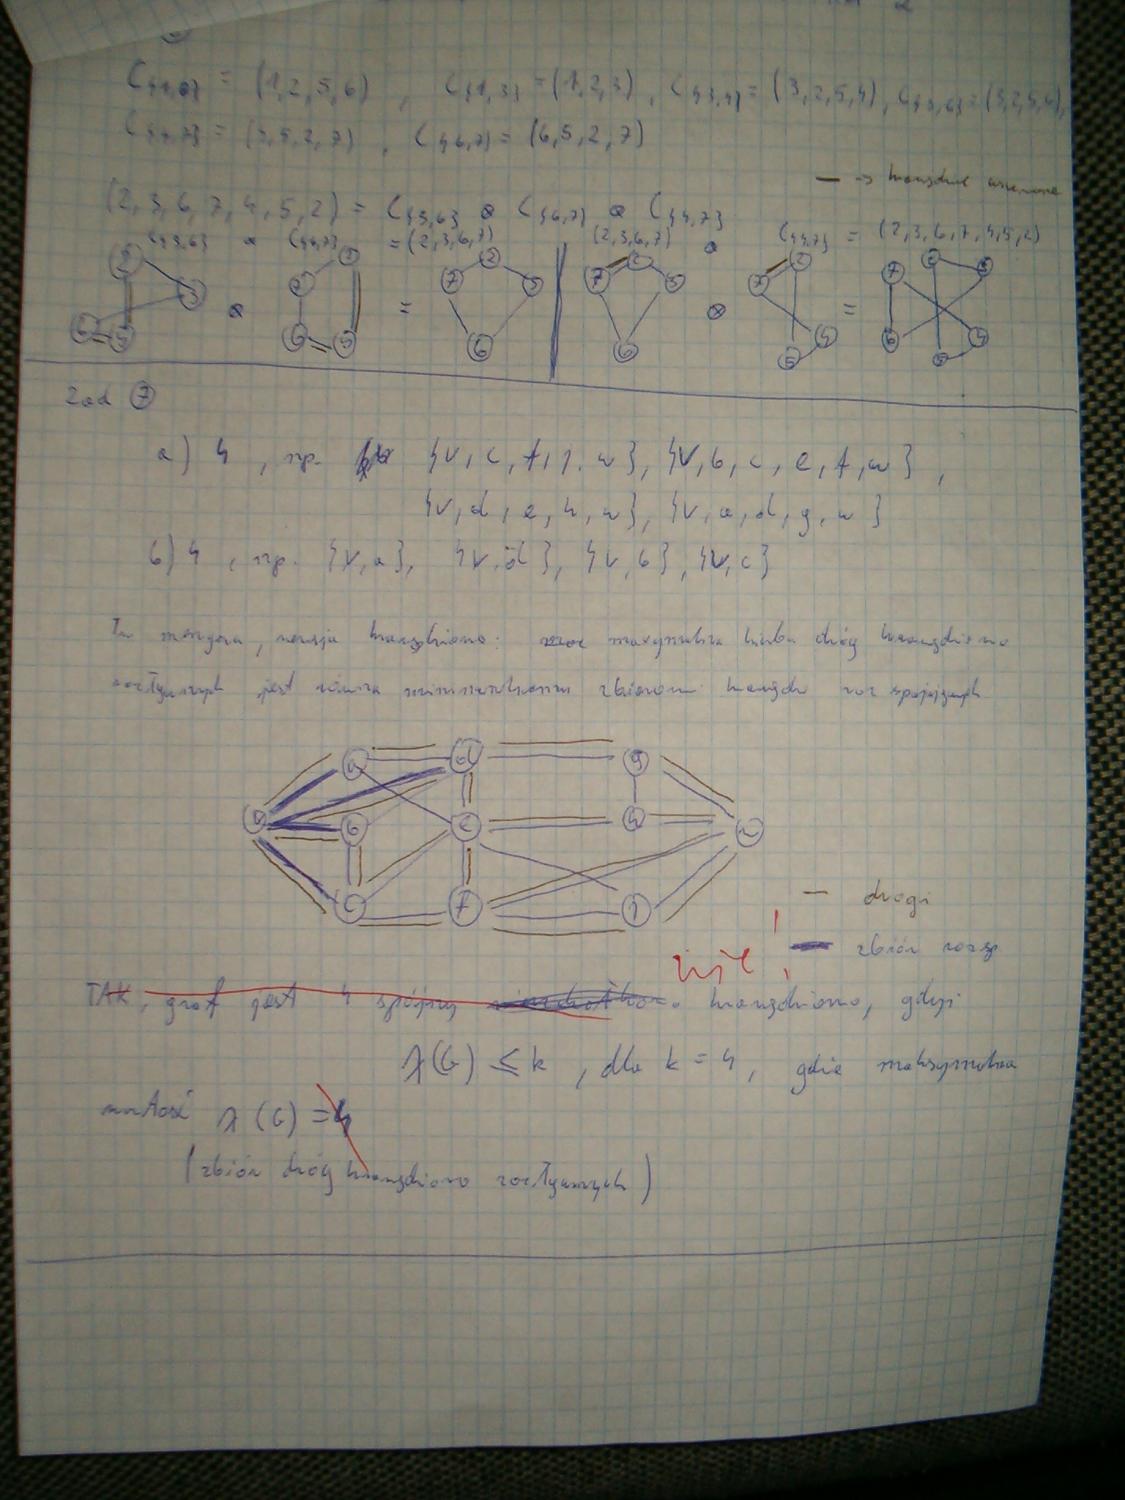 C{1,6} = (1,2,5,6) , C{1,3} = (1,2,3) , C{3,4} = (3,2,5,4) , C{3,6} = (3,2,5,6),
C{4,7} = (4,5,2,7) , C{6,7} = (6,5,2,7)
(2,3,6,7,4,5,2) = C{3,6} ⊗ C{6,7} ⊗ C{4,7}
C{3,6} ⊗ C{6,7} = (2,3,6,7) (2,3,6,7) ⊗ C{4,7} = (2,3,6,7,4,5,2)
Zad 7
a) 4 , np. {v, c, f, j, w}, {v, b, c, e, f, w} ,
{v, d, e, h, w}, {v, a, d, g, w}
b) 4 , np. {v, a}, {v, d}, {v, b}, {v, c}
Tw mengera, wersja krawędziowa: maksymalna liczba dróg krawędziowo
rozłącznych jest równa minimalnemu zbiorowi krawędzi rozspajających
v a d g
b e h w
c f j
— drogi
— zbiór rozsp
nie!
TAK, graf jest 4 spójny krawędziowo, gdyż
λ(G) ≤ k , dla k = 4, gdzie maksymalna
wartość λ(G) = 4
(zbiór dróg krawędziowo rozłącznych)